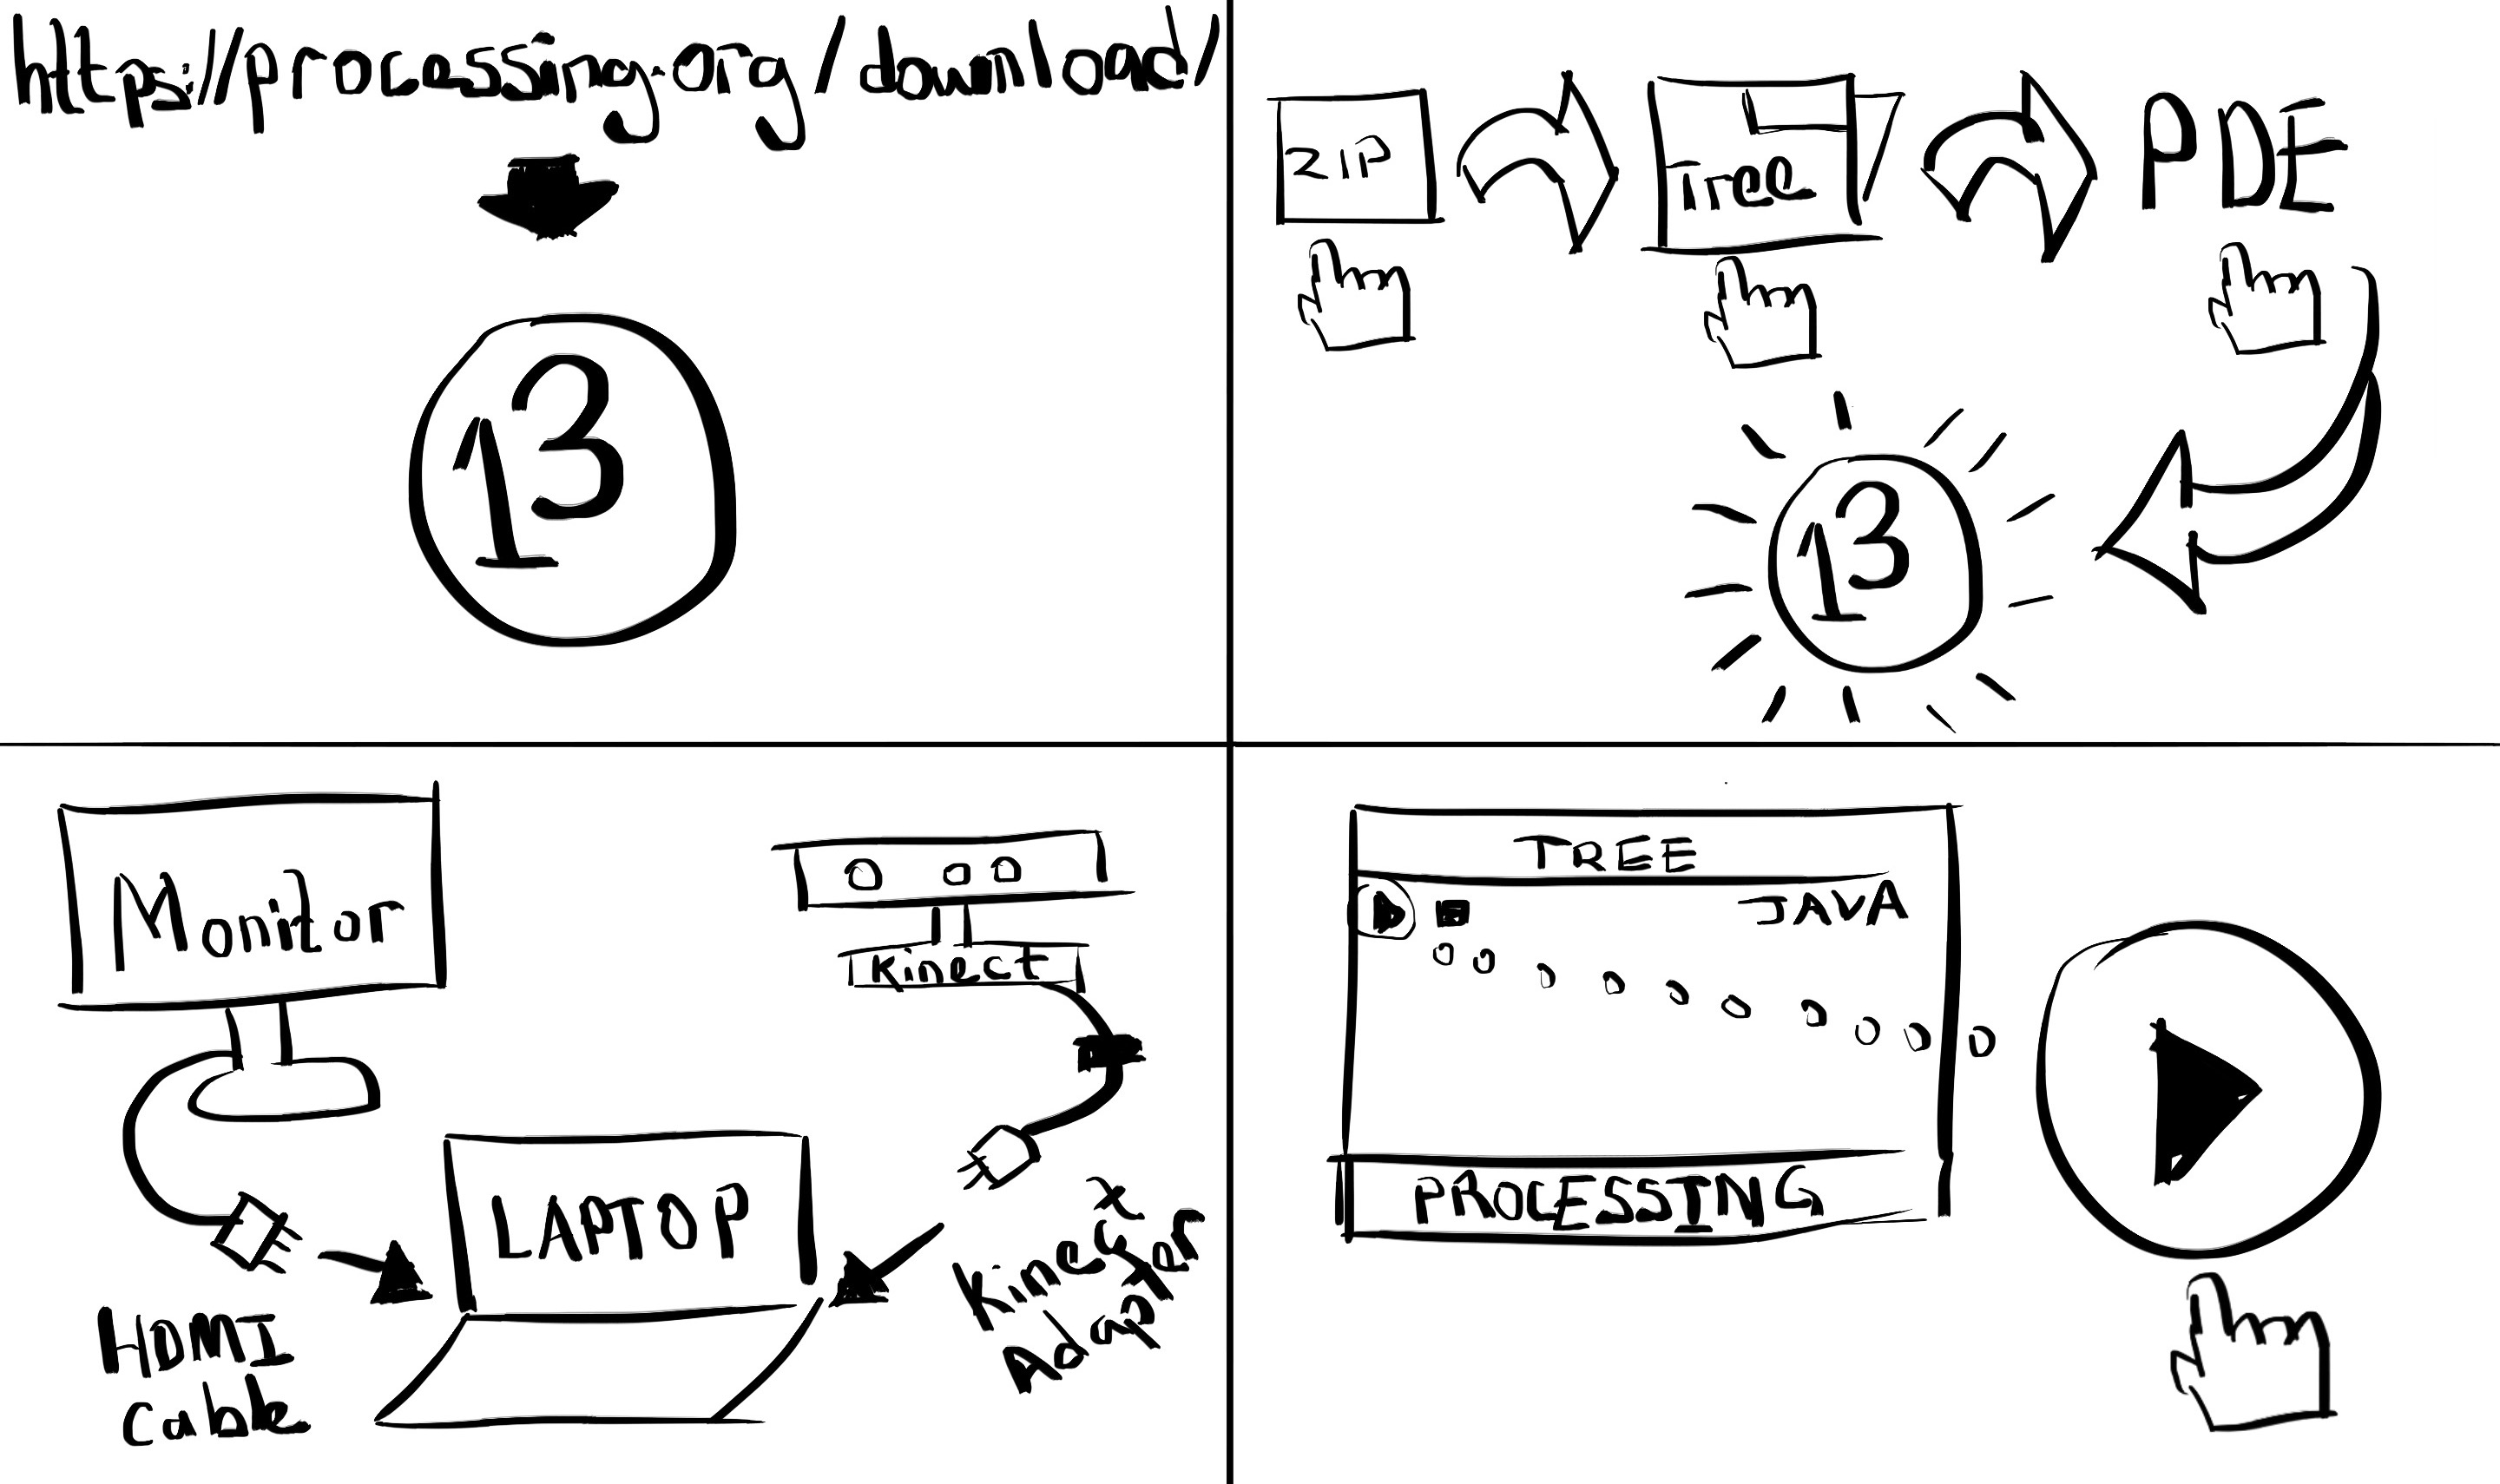 https://processing.org/download/
13
ZIP
Tree
PDE
13
Monitor
Kinect
LAPTOP
HDMI
Cable
Kinect
Adapter
TREE
JAVA
PROCESSING